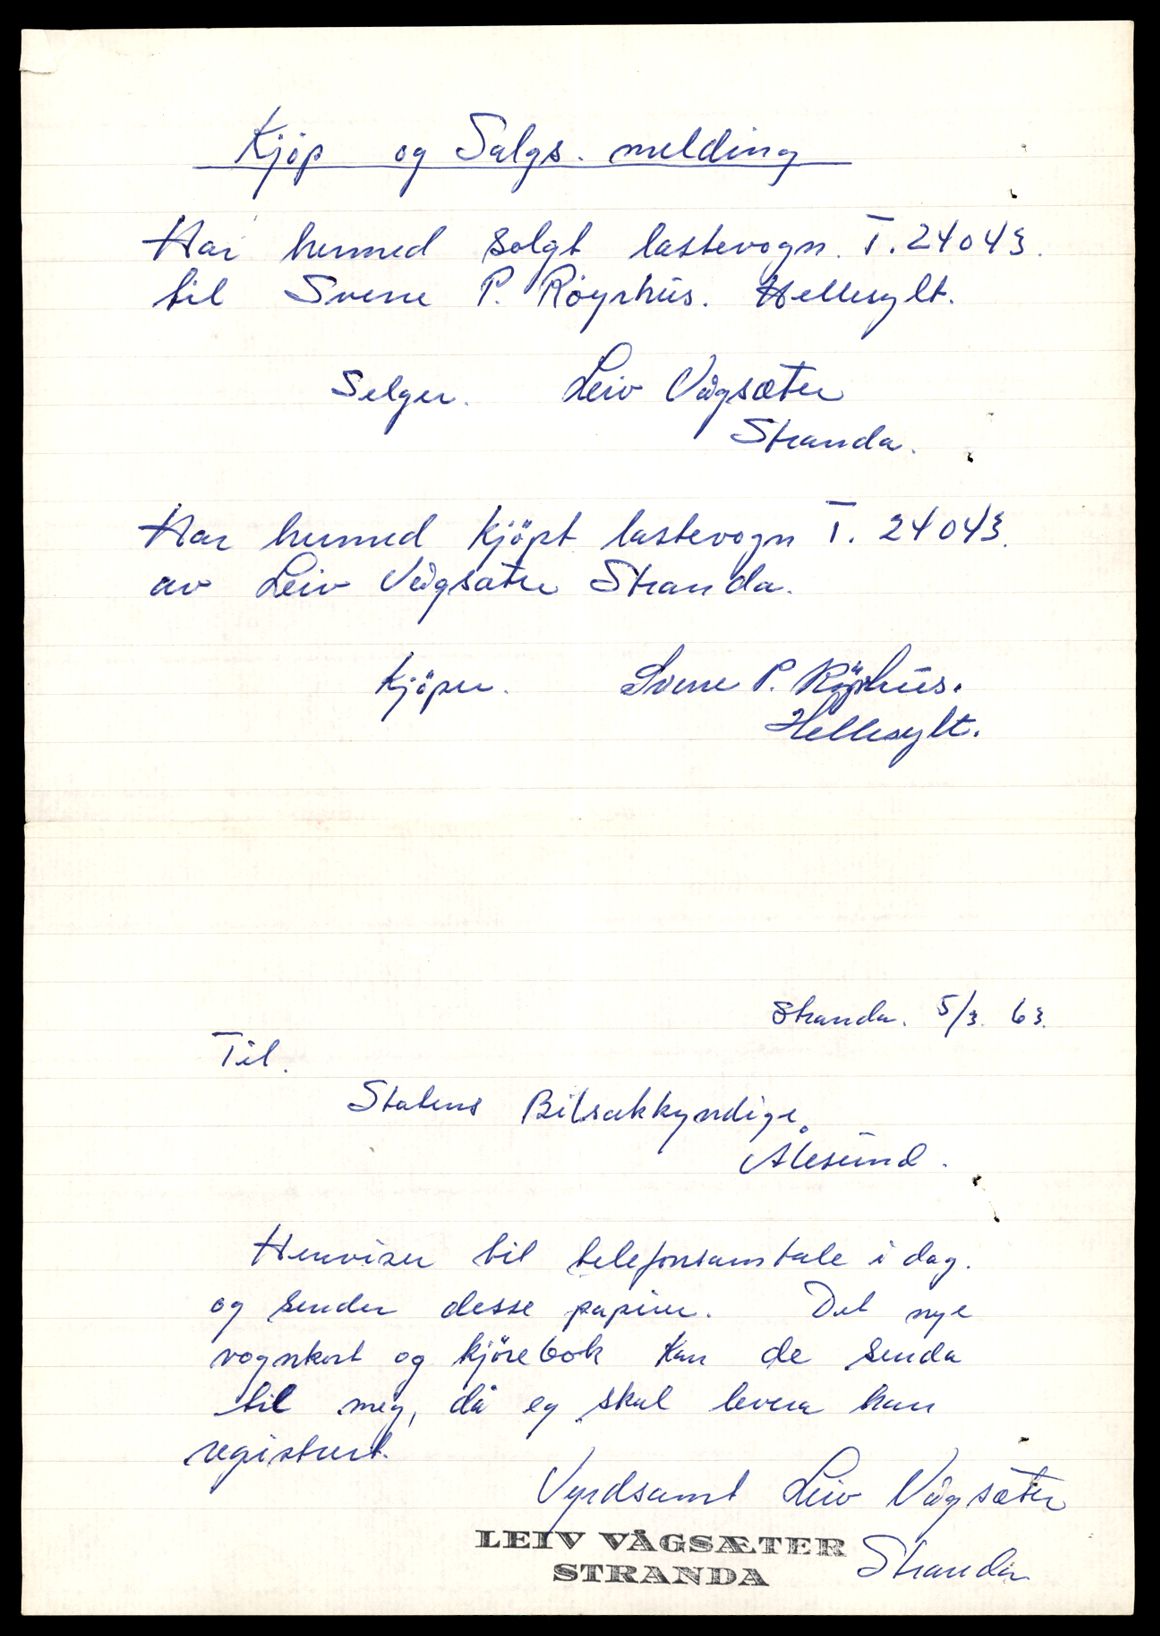 Kjöp og Salgs. melding
Har hermed solgt lastevogn. T. 24043.
til Sverre P. Röyrhus. Hellesylt.
Selger. Leiv Vågsæter
Stranda.
Har hermed kjöpt lastevogn T. 24043.
av Leiv Vågsæter Stranda.
Kjöper. Sverre P. Röyrhus.
Hellesylt.
Stranda. 5/3. 63.
Til.
Statens Bilsakkyndige.
Ålesund.
Henviser til telefonsamtale i dag.
og sender desse papirer. Det nye
vognkort og kjörebok kan de senda
til meg, då eg skal levera han
registrert.
Vyrdsamt Leiv Vågsæter
LEIV VÅGSÆTER Stranda
STRANDA